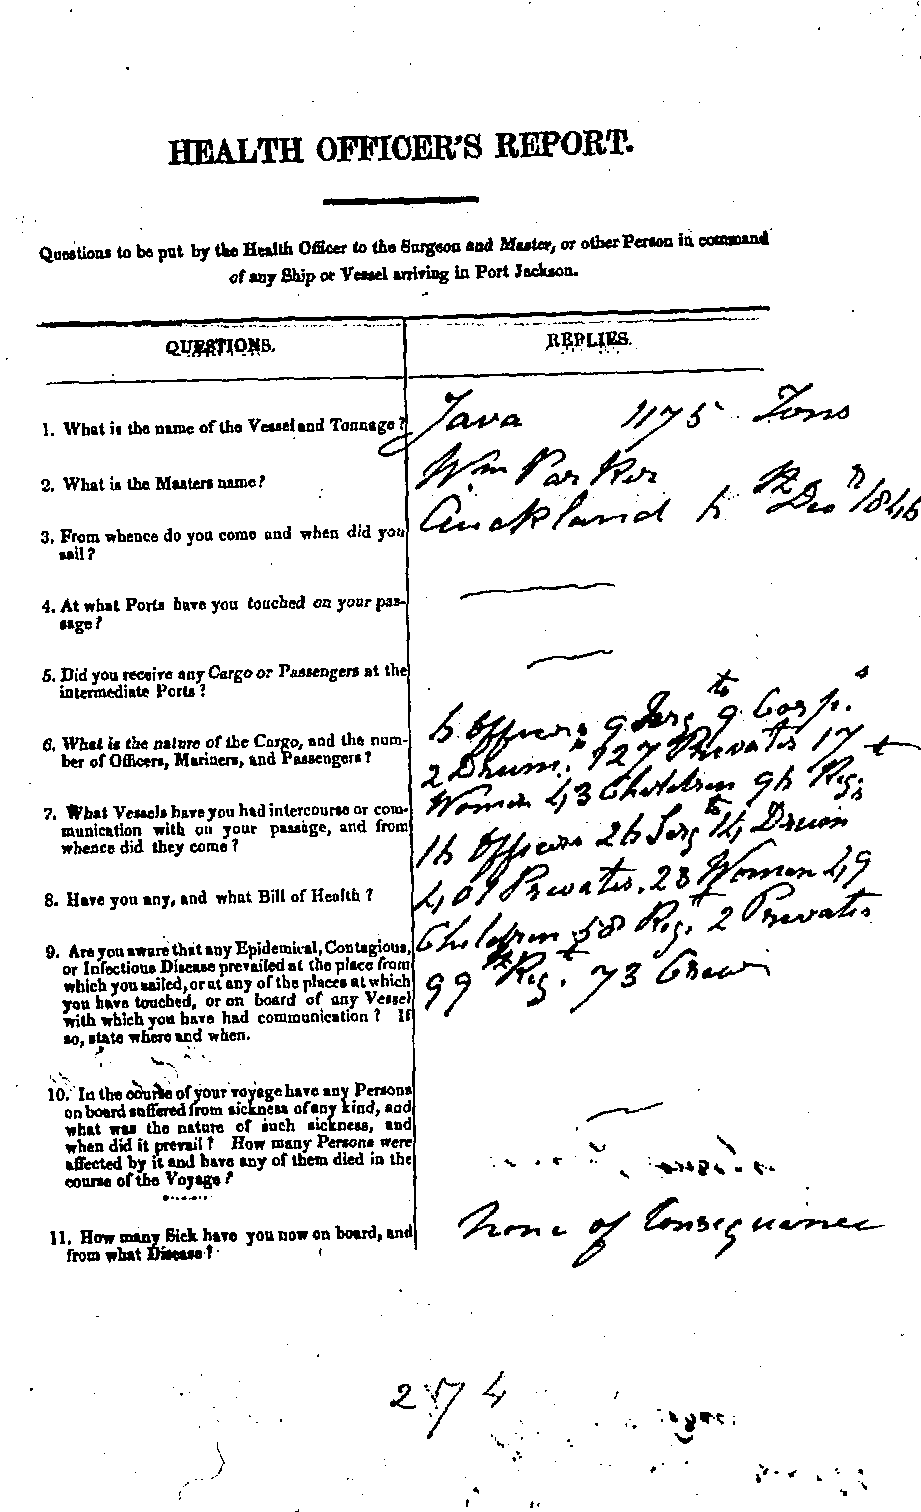 HEALTH OFFICER'S REPORT.
Questions to be put by the Health Officer to the Surgeon and Master, or other Person in command
of any Ship or Vessel arriving in Port Jackson.
QUESTIONS.
REPLIES.
1. What is the name of the Vessel and Tonnage?
Java 1175 Tons
2. What is the Masters name?
Wm Parker
3. From whence do you come and when did you
sail?
Auckland Decr 1846
4. At what Ports have you touched on your pas-
sage?
5. Did you receive any Cargo or Passengers at the
intermediate Ports?
6. What is the nature of the Cargo, and the num-
ber of Officers, Mariners, and Passengers?
Officers 9 Sergts 9 Corpls
2 Drumrs 127 Privates 17
Women 43 Children Regt
7. What Vessels have you had intercourse or com-
munication with on your passage, and from
whence did they come?
Officers Sergts 14 Drum
8. Have you any, and what Bill of Health?
401 Privates. 28 Women 49
Children 58 Regt. 2 Privates
99th Regt. 73 Crew
9. Are you aware that any Epidemical, Contagious,
or Infectious Disease prevailed at the place from
which you sailed, or at any of the places at which
you have touched, or on board of any Vessel
with which you have had communication? If
so, state where and when.
10. In the course of your voyage have any Persons
on board suffered from sickness of any kind, and
what was the nature of such sickness, and
when did it prevail? How many Persons were
affected by it and have any of them died in the
course of the Voyage?
11. How many Sick have you now on board, and
from what Disease?
None of Consequence
274